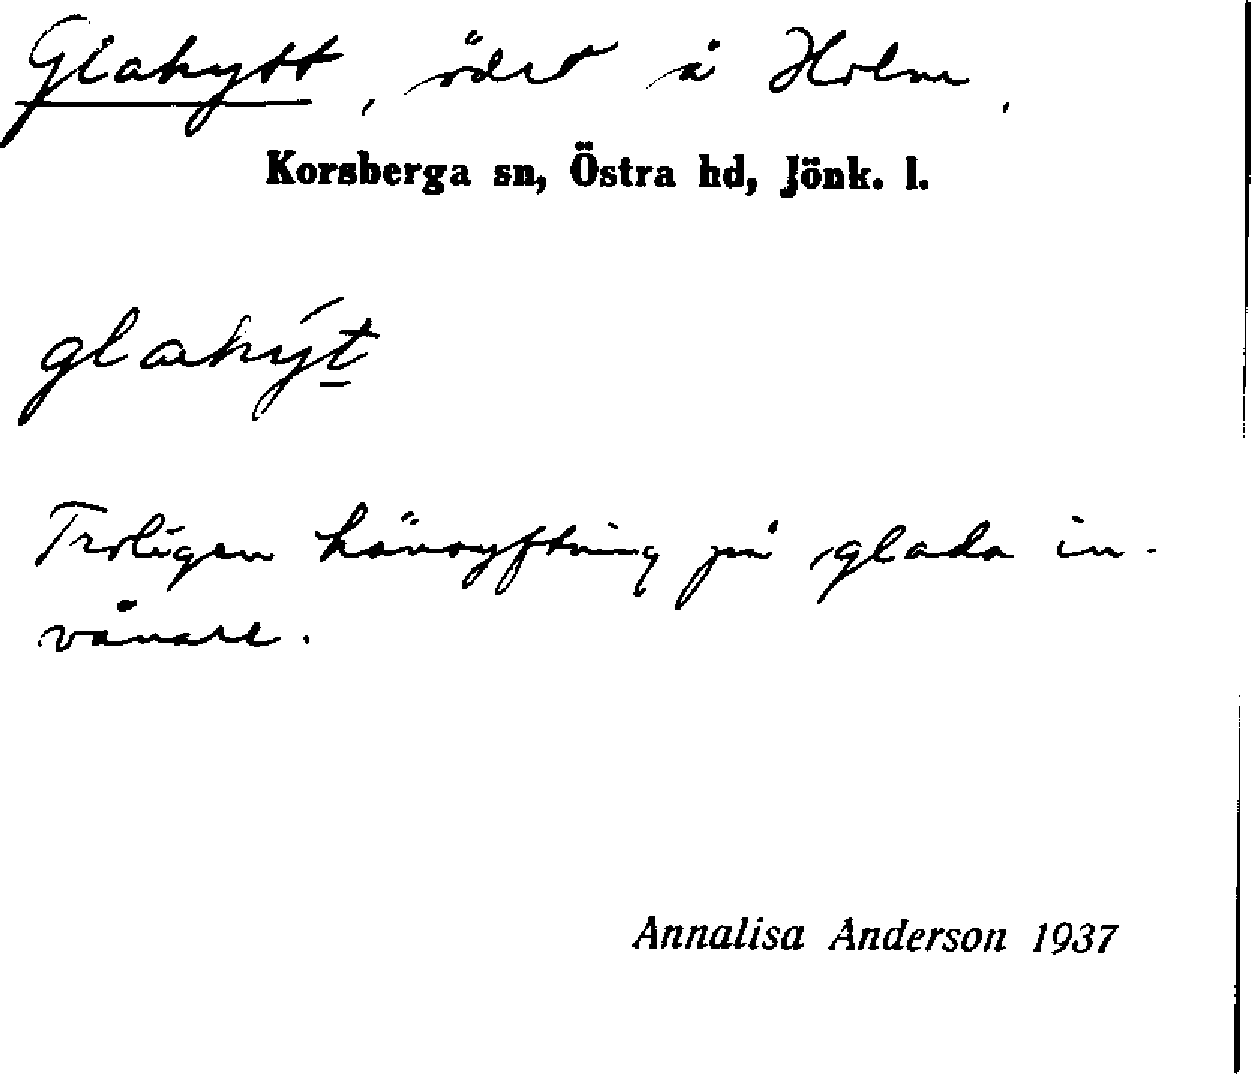 Glahytt, ödet å Holm.
Korsberga sn, Östra hd, Jönk. l.
glahýt̲
Troligen hänsyftning på glada in-
vånare.
Annalisa Anderson 1937